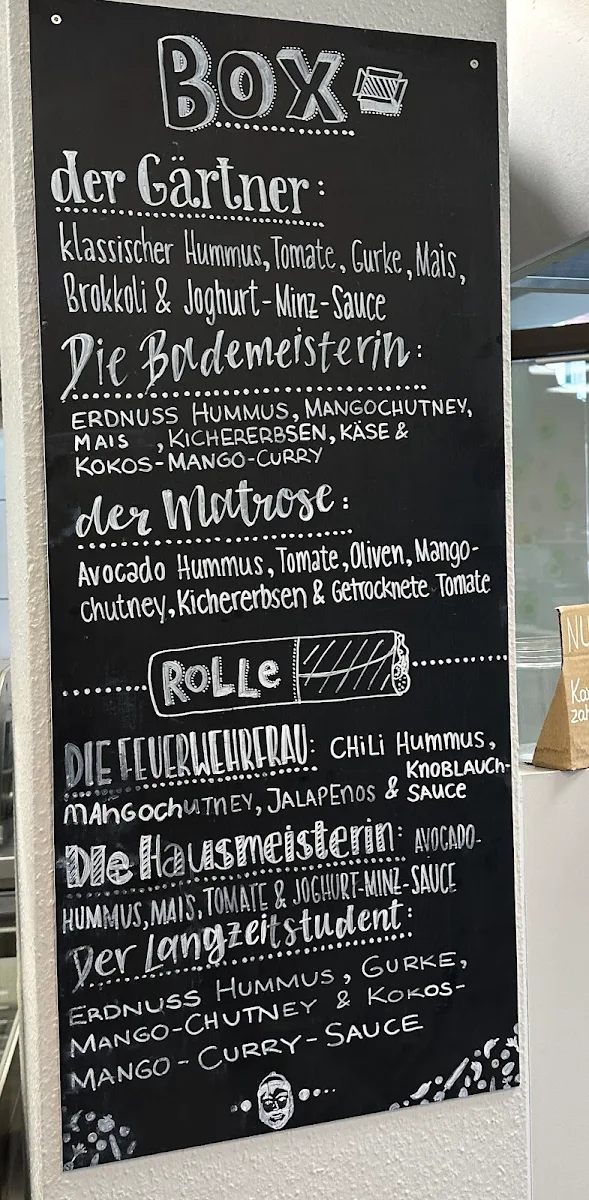 BOX
der Gärtner:
klassischer Hummus, Tomate, Gurke, Mais,
Brokkoli & Joghurt-Minz-Sauce
Die Bademeisterin:
ERDNUSS HUMMUS, MANGOCHUTNEY,
MAIS , KICHERERBSEN, KÄSE &
KOKOS-MANGO-CURRY
der Matrose:
Avocado Hummus, Tomate, Oliven, Mango-
chutney, Kichererbsen & Getrocknete Tomate
ROLLe
DIE FEUERWEHRFRAU: CHiLi Hummus,
MANGOchUTNEY, JALAPENOS & KNOBLAUCH-
SAUCE
Die Hausmeisterin: AVOCADO-
HUMMUS, MAIS, TOMATE & JOGHURT-MINZ-SAUCE
Der Langzeitstudent:
ERDNUSS HUMMUS, GURKE,
MANGO-CHUTNEY & KOKOS-
MANGO-CURRY-SAUCE